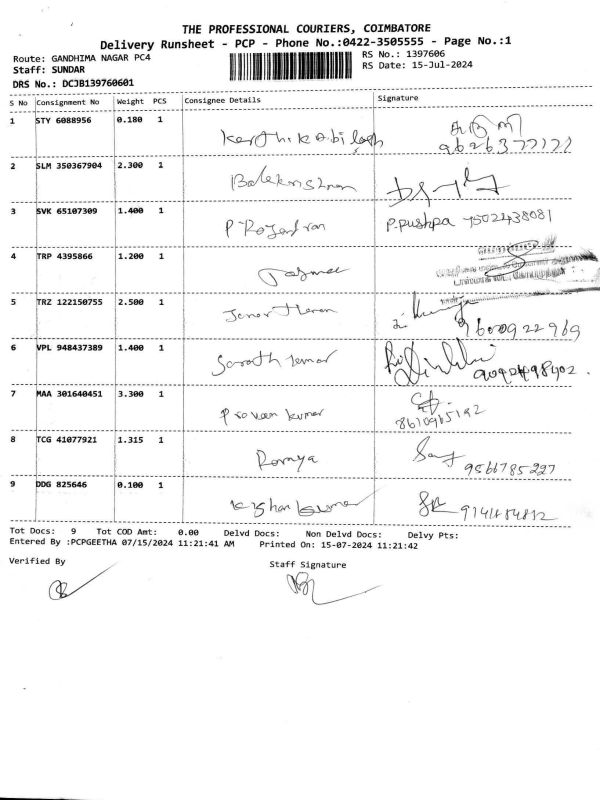 THE PROFESSIONAL COURIERS, COIMBATORE
Delivery Runsheet - PCP - Phone No.:0422-3505555 - Page No.:1
Route: GANDHIMA NAGAR PC4 RS No.: 1397606
Staff: SUNDAR RS Date: 15-Jul-2024
DRS No.: DCJB139760601
S No Consignment No Weight PCS Consignee Details Signature
1 STY 6088956 0.180 1
2 SLM 350367904 2.300 1 Balakrishnan
3 SVK 65107309 1.400 1 P Rajendran P. Pushpa 7502438081
4 TRP 4395866 1.200 1
5 TRZ 122150755 2.500 1 9600922969
6 VPL 948437389 1.400 1
7 MAA 301640451 3.300 1 Praveen kumar
8610965192
8 TCG 41077921 1.315 1 Ramya
9566785227
9 DDG 825646 0.100 1 Kishan kumar
Tot Docs: 9 Tot COD Amt: 0.00 Delvd Docs: Non Delvd Docs: Delvy Pts:
Entered By :PCPGEETHA 07/15/2024 11:21:41 AM Printed On: 15-07-2024 11:21:42
Verified By Staff Signature